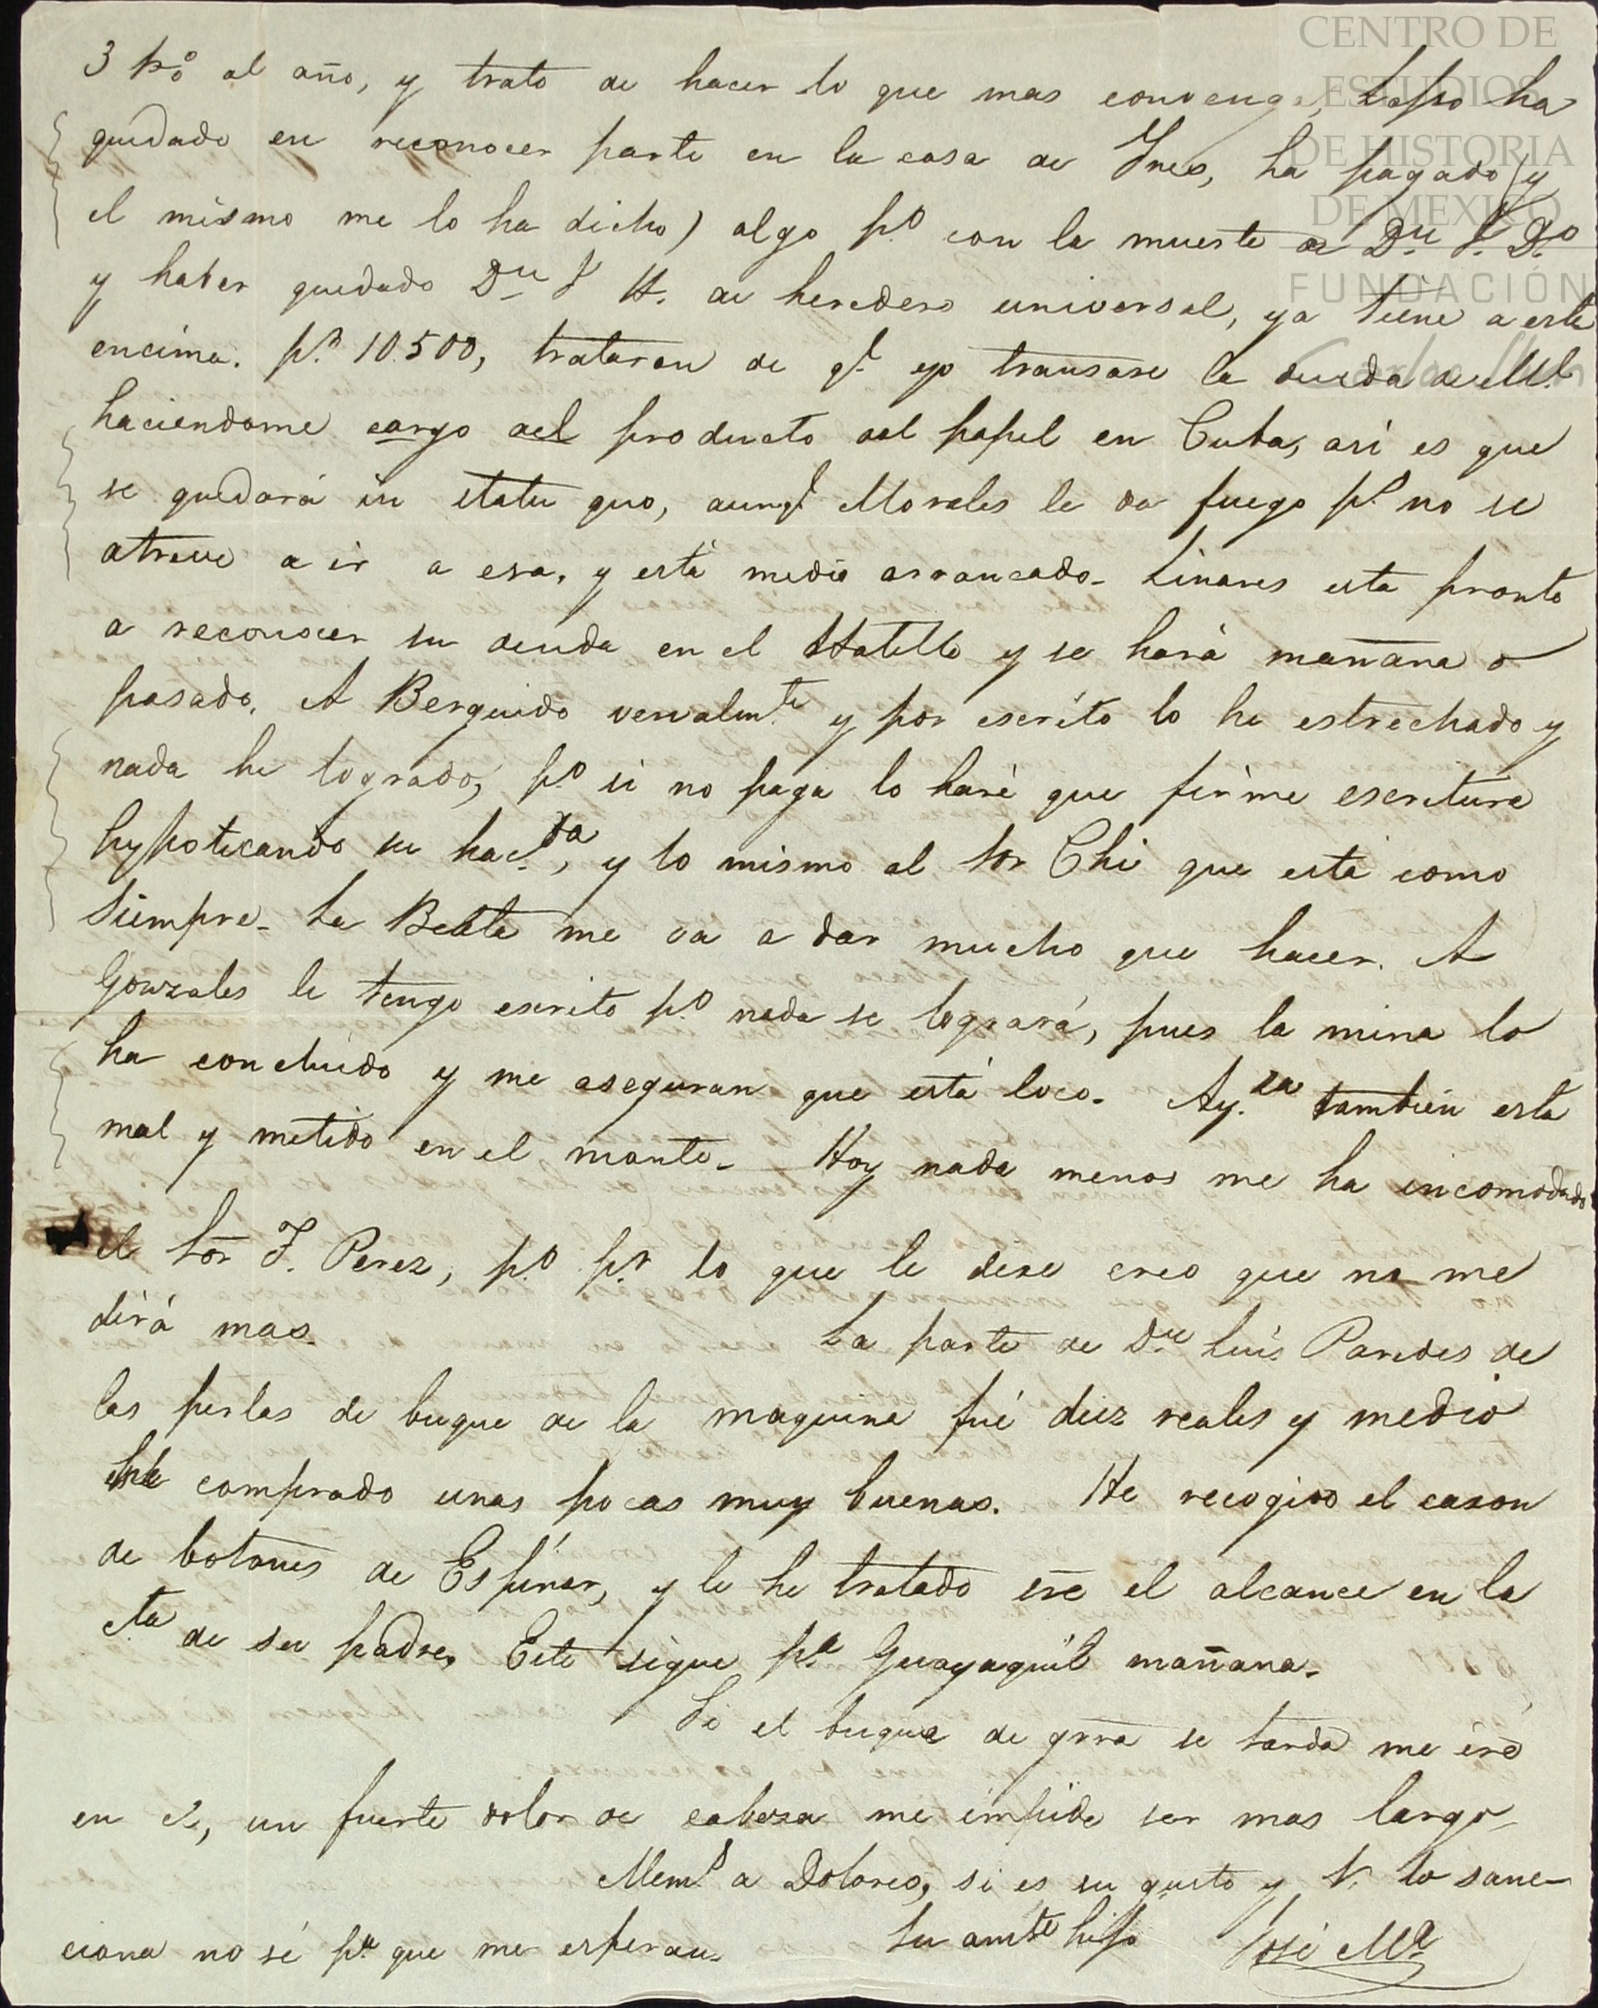 CENTRO DE
ESTUDIOS
DE HISTORIA
DE MEXICO
FUNDACIÓN
3 p%o al año, y trato de hacer lo que mas convenga, ha
quedado en reconocer parte en la casa de Ynes, ha pagado (y
el mismo me lo ha dicho) algo p.o con la muerte de Dn J. Do
y haber quedado Dn J H. de heredero universal, ya tiene a este
encima. p.r 10.500, trataron de q.e yo transase la deuda de Ml
haciendome cargo del producto del papel en Cuba, asi es que
se quedará in statu quo, aunq.e Morales le da fuego p.o no se
atreve a ir a esa, y está medio arrancado. Linares esta pronto
a reconocer su deuda en el Hatillo y se hará mañana o
pasado. A Berguido vervalm.te y por escrito lo he estrechado y
nada he logrado, p.o si no paga lo haré que firme escritura
hypoticando su hac.da, y lo mismo al Sor Chi que está como
Siempre. La Beata me va a dar mucho que hacer. A
Gonzales le tengo escrito p.o nada se logrará, pues la mina lo
ha concluido y me aseguran que está loco. Ay.za tambien esta
mal y metido en el monte. Hoy nada menos me ha incomodado
el Sor F. Perez, p.o p.r lo que le dixe creo que no me
dirá mas. La parte de Dn Luis Paredes de
las perlas de buque de la maquina fué diez reales y medio
he comprado unas pocas muy buenas. He recogido el caxon
de botones de Espinar, y le he tratado sre el alcance en la
cta de su padre. Este sigue p.a Guayaquil mañana.
Si el buque de grra se tarda me iré
en el, un fuerte dolor de cabeza me impide ser mas largo.
Mem.s a Dolores, si es su gusto y V. lo sanc-
ciona no sé p.a que me esperan. Su amte hijo José Ma